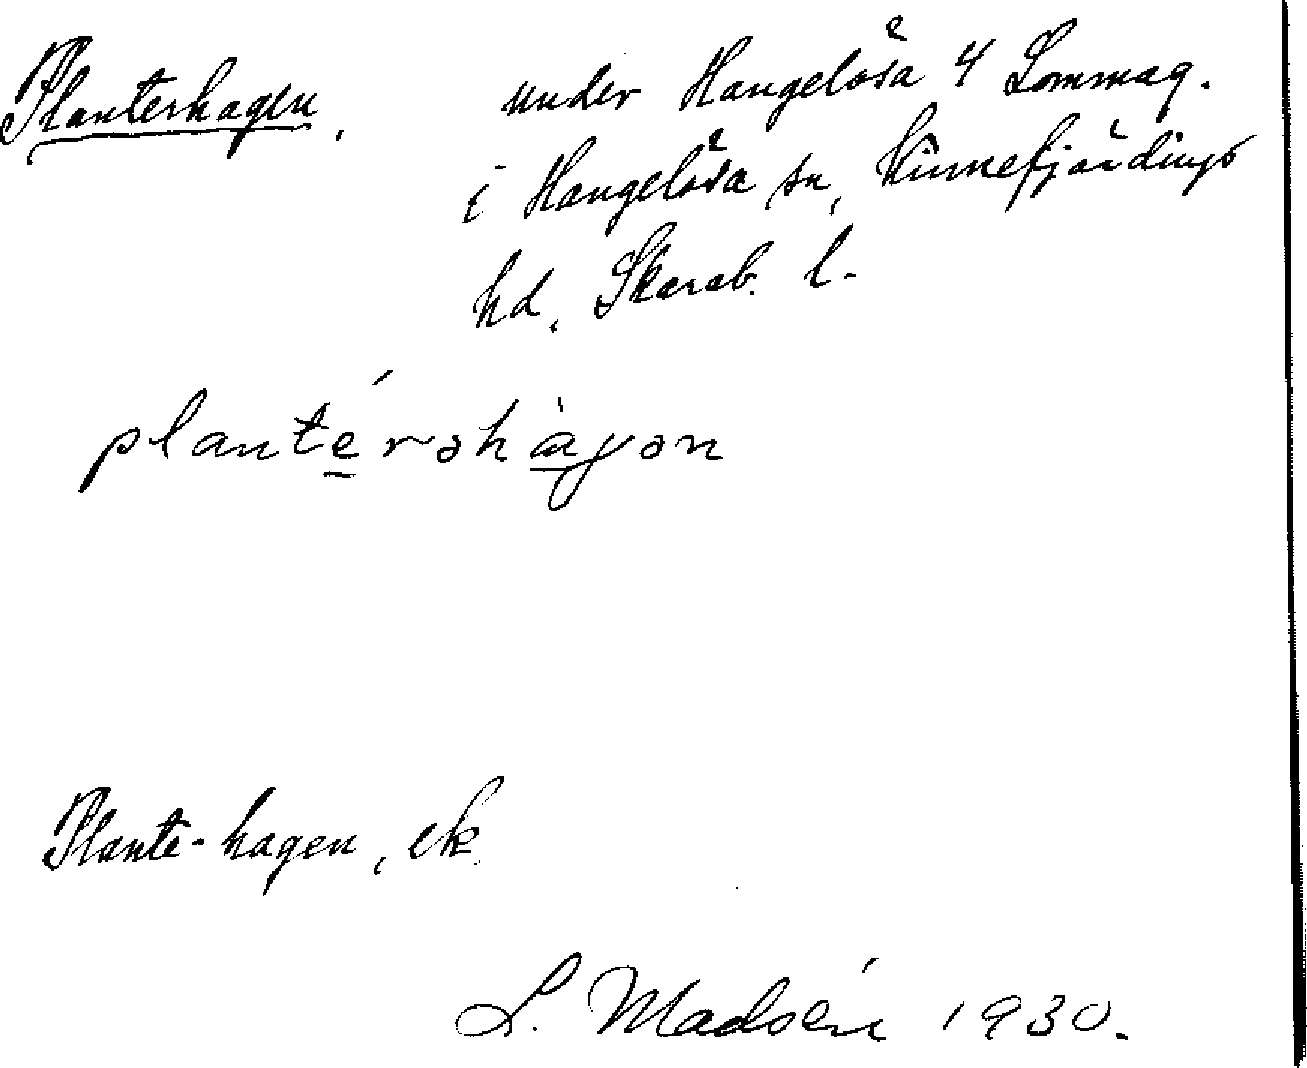 Planterhagen. under Hangelösa 4 Sommag.
i Hangelösa sn, Kinnefjärdings
hd, Skarab. l.
plantérəhàgən
Plante-hagen, ek.
L. Madsén 1930.